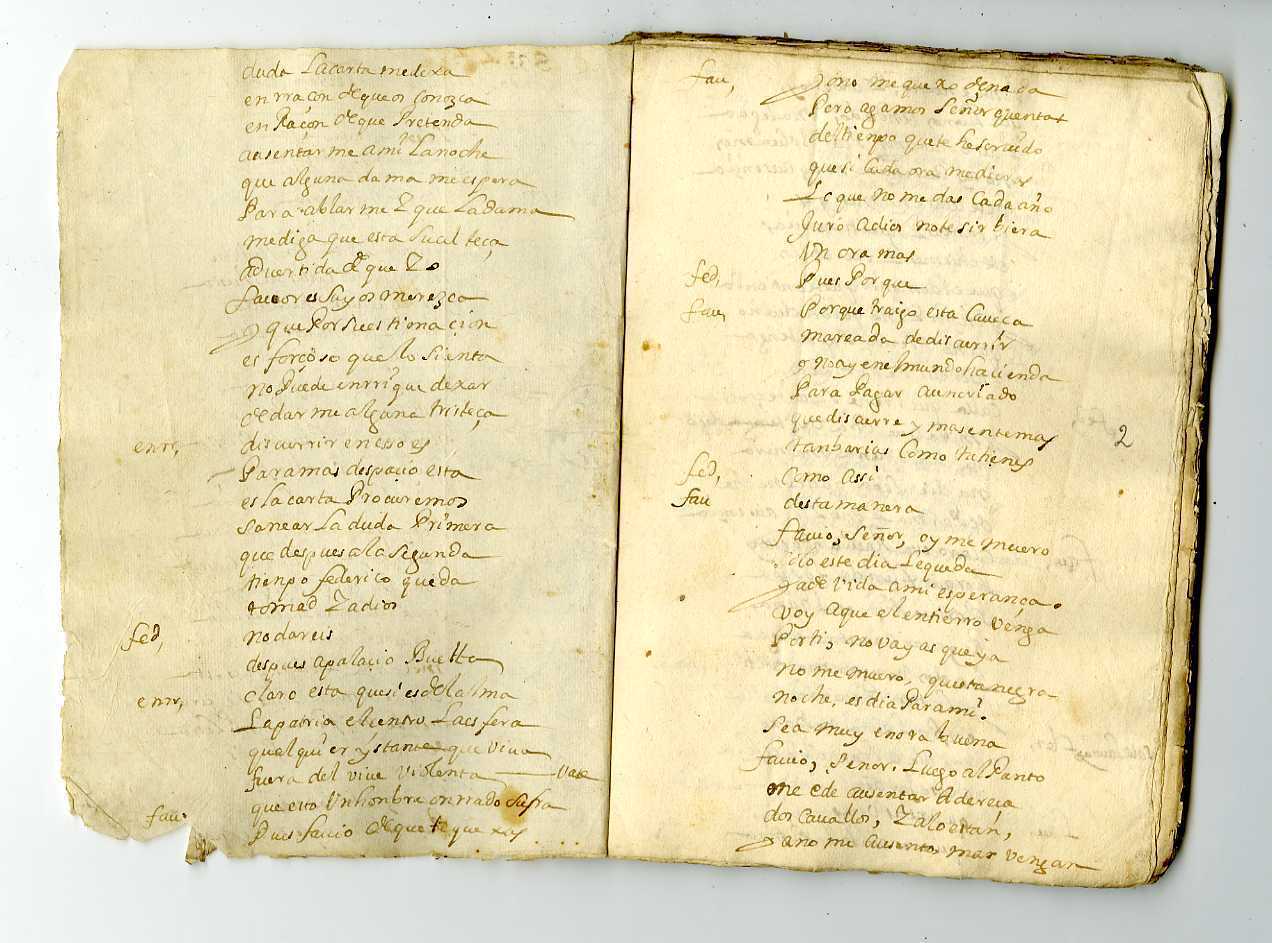 duda la carta me dexa
en rraçon de que os conozca
en Raçon de que Pretenda
ausentar me a mi la noche
que alguna dama me espera
Para ablar me Z que la dama
me diga que esta su calteça
advertida de que Zo
favores suyos merezca
y que Por su estimaçion
es forçoso que lo sienta
no Puede enrrique dexar
de dar me alguna tristeça
enrr, discurrir en esso es
Para mas despacio esta
es la carta Procuremos
sanear La duda Primera
que despues a la segunda
tienpo federico queda
tomad Z adios
fed, no dareis
despues a palacio Buelta
enrr, claro esta que si es del alma
La patria el centro La esfera
qualquier ystante que viva
fuera del vive violenta — vase
fau. que esto Un hombre onrrado sufra
Pues favio de que te quexas
fau, yo no me quexo de nada
Pero agamos Señor quentas
del tienpo que te he servido
que si cada ora me dieras
Lo que no me das Cada año
Juro a dios no te sirbiera
Un ora mas
fed, Pues Porque
fau, Porque traigo esta Caveca
mareada de discurrir
y no ay en el mundo hacienda
Para Pagar a un criado
que discurre y mas en temas
tan barias Como tu tienes
fed, Como assi
fau desta manera
favio, Señor, oy me muero
solo este dia le queda
ya de vida a mi esperança.
voy a que el entierro venga
Por ti, no vayas que ya
no me muero, que esta negra
noche, es dia Para mi.
Sea muy en ora buena
favio, Señor. Luego al Punto
me e de ausentar adereça
dos cavallos, Za lo estan,
ya no me ausento, mas vengan
2